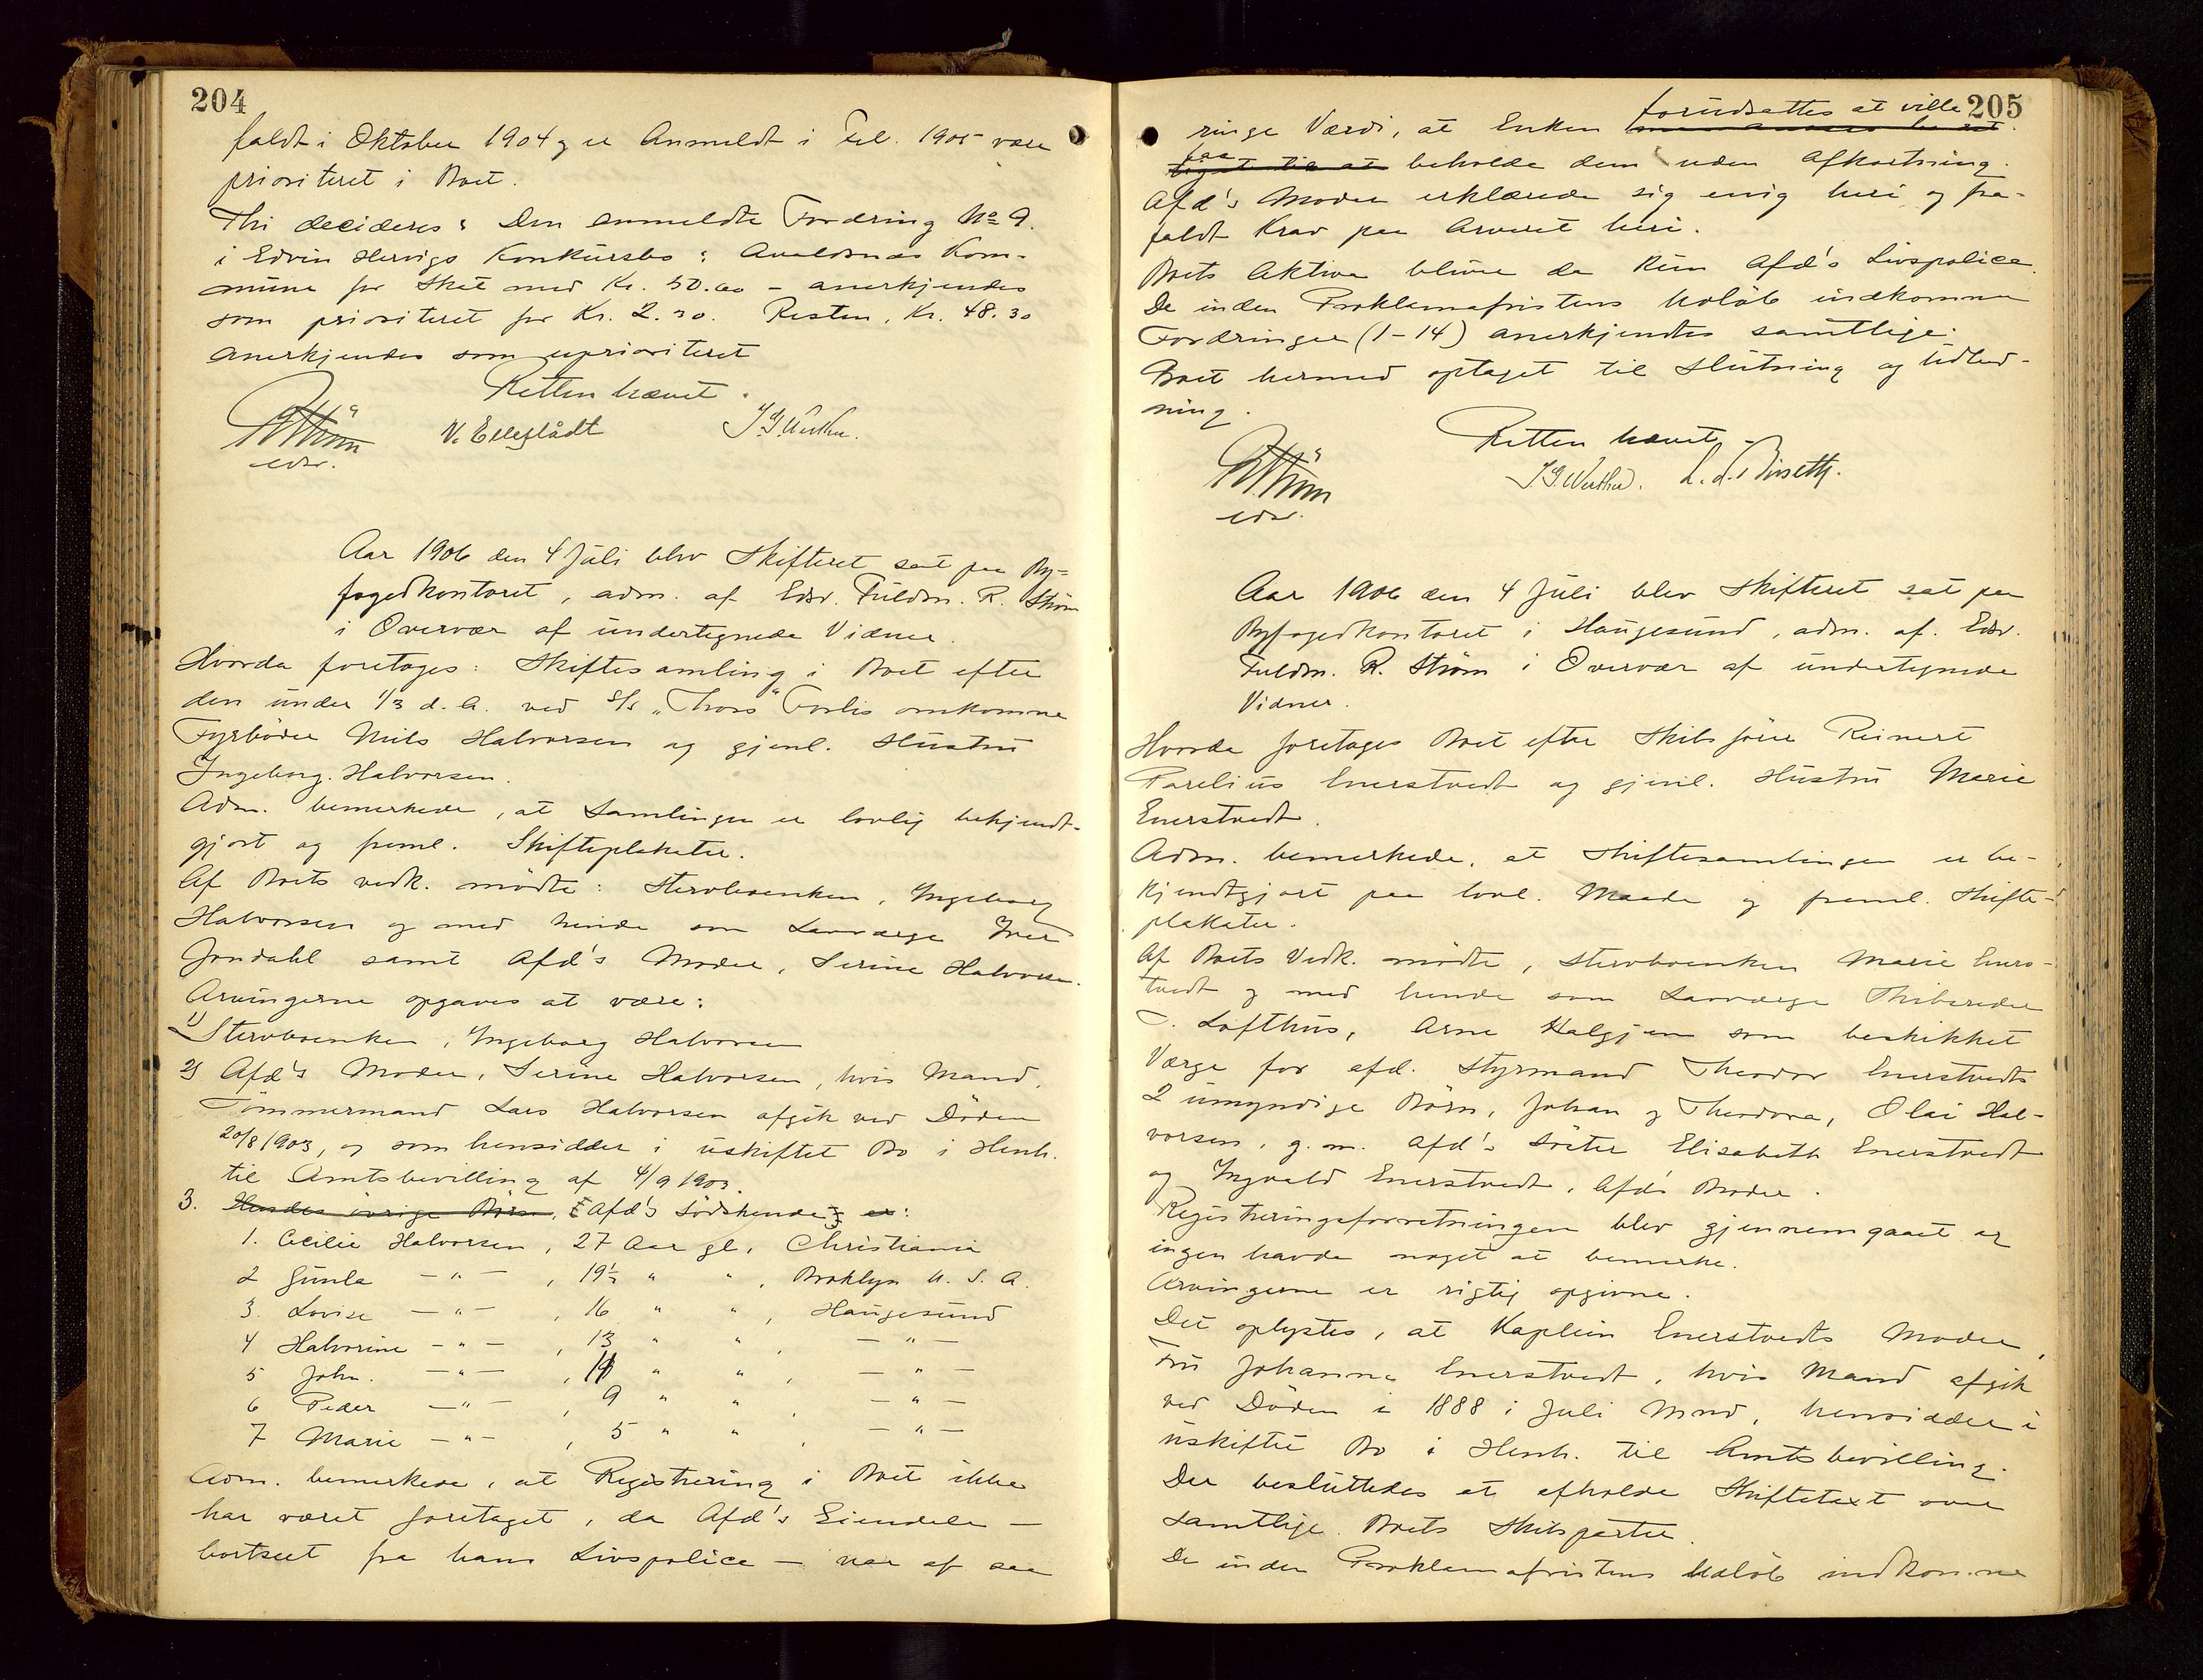 204
faldt i Oktober 1904 og er Anmeldt i Feb. 1905 være
prioriteret i Boet.
Thi decideres: Den anmeldte Fordring No 9.
i Edvin Hervigs Konkursbo: Avaldsnæs Kom-
mune for Skat med Kr. 50.60 - anerkjendes
som prioriteret for Kr. 2.30. Resten, Kr. 48.30
anerkjendes som uprioriteret
Retten hævet.
R Strøm V. Elleflådt J. G. Wether.
edsv.
Aar 1906 den 4 Juli blev Skifteret sat paa By-
fogedkontoret, adm. af Edsv. Fuldm. R. Strøm
i Overvær af undertegnede Vidner.
Hvorda foretoges: Skiftesamling i Boet efter
den under 1/3 d. A. ved S/S "Thors" Forlis omkomne
Fyrbøder Nils Halvorsen og gjenl. Hustru
Ingeborg Halvorsen.
Adm. bemerkede, at Samlingen er lovlig bekjendt-
gjort og freml. Skifteplakater.
Af Boets vedk. mødte: Stervboenken, Ingeborg
Halvorsen og med hende som Laugværge Iver
Jondahl samt Afd's Moder, Serine Halvorsen.
Arvingerne opgaves at være:
1) Stervboenken, Ingeborg Halvorsen
2) Afd's Moder, Serine Halvorsen, hvis Mand,
Tømmermand Lars Halvorsen afgik ved Døden
20/8 1903, og som hensidder i uskiftet Bo i Henh.
til Amtsbevilling af 4/9 1903.
3. Hendes øvrige Børn, [Afd's Sødskende] er:
1. Cecilie Halvorsen, 27 Aar gl. Christiania
2 Gunla — " — , 19½ " " , Broklyn U. S. A.
3. Lovise — " — , 16 " " , Haugesund
4 Halvorine — " — , 13 " " , — " —
5 John. — " — , 11 " " , — " —
6 Peder — " — , 9 " " , — " —
7 Marie — " — , 5 " " , — " —
Adm. bemerkede, at Registrering i Boet ikke
har været foretaget, da Afd's Eiendele —
bortseet fra hans Livspolice — var af saa
205
forudsattes at ville
ringe Værdi, at Enken
faa
beholde dem uden Afkortning.
Afd's Moder erklærede sig enig heri og fra-
faldt Krav paa Arveret heri.
Boets Aktiva bliver da kun Afd's Livspolice.
De inden Proklamafristens Udløb indkomne
Fordringer (1-14) anerkjendtes samtlige.
Boet hermed optaget til Slutning og Udlod-
ning.
Retten hævet
R Strøm J. G. Wether.
edsv.
Aar 1906 den 4 Juli blev Skifteret sat paa
Byfogedkontoret i Haugesund, adm. af. Edsv.
Fuldm. R. Strøm i Overvær af undertegnede
Vidner.
Hvorda foretoges Boet efter Skibsfører Reinert
Parelius Enerstvedt og gjenl. Hustru Marie
Enerstvedt.
Adm. bemerkede, at Skiftesamlingen er be-
kjendtgjort paa lovl. Maade og freml. Skifte-
plakater.
Af Boets Vedk. mødte, Stervboenken Marie Eners-
tvedt og med hende som Laugværge Skibsreder
T. Lofthus, Arne Halgjem som beskikket
Værge for afd. Styrmand Theodor Enerstvedts
2 umyndige Børn, Johan og Theodora, Olai Hal-
vorsen, g. m. Afd's Søster Elisabeth Enerstvedt
og Ingvald Enerstvedt, Afd's Broder.
Registreringsforretningen blev gjennemgaaet og
ingen havde noget at bemerke.
Arvingerne er rigtig opgivne.
Det oplystes, at Kaptein Enerstvedts Moder,
Fru Johanna Enerstvedt, hvis Mand afgik
ved Døden i 1888 i Juli Mnd, hensidder i
uskiftet Bo i Henh. til Amtsbevilling.
Der besluttedes at afholde Skiftetaxt over
samtlige Boets Skibsparter.
De inden Proklamafristens Udløb indkomne